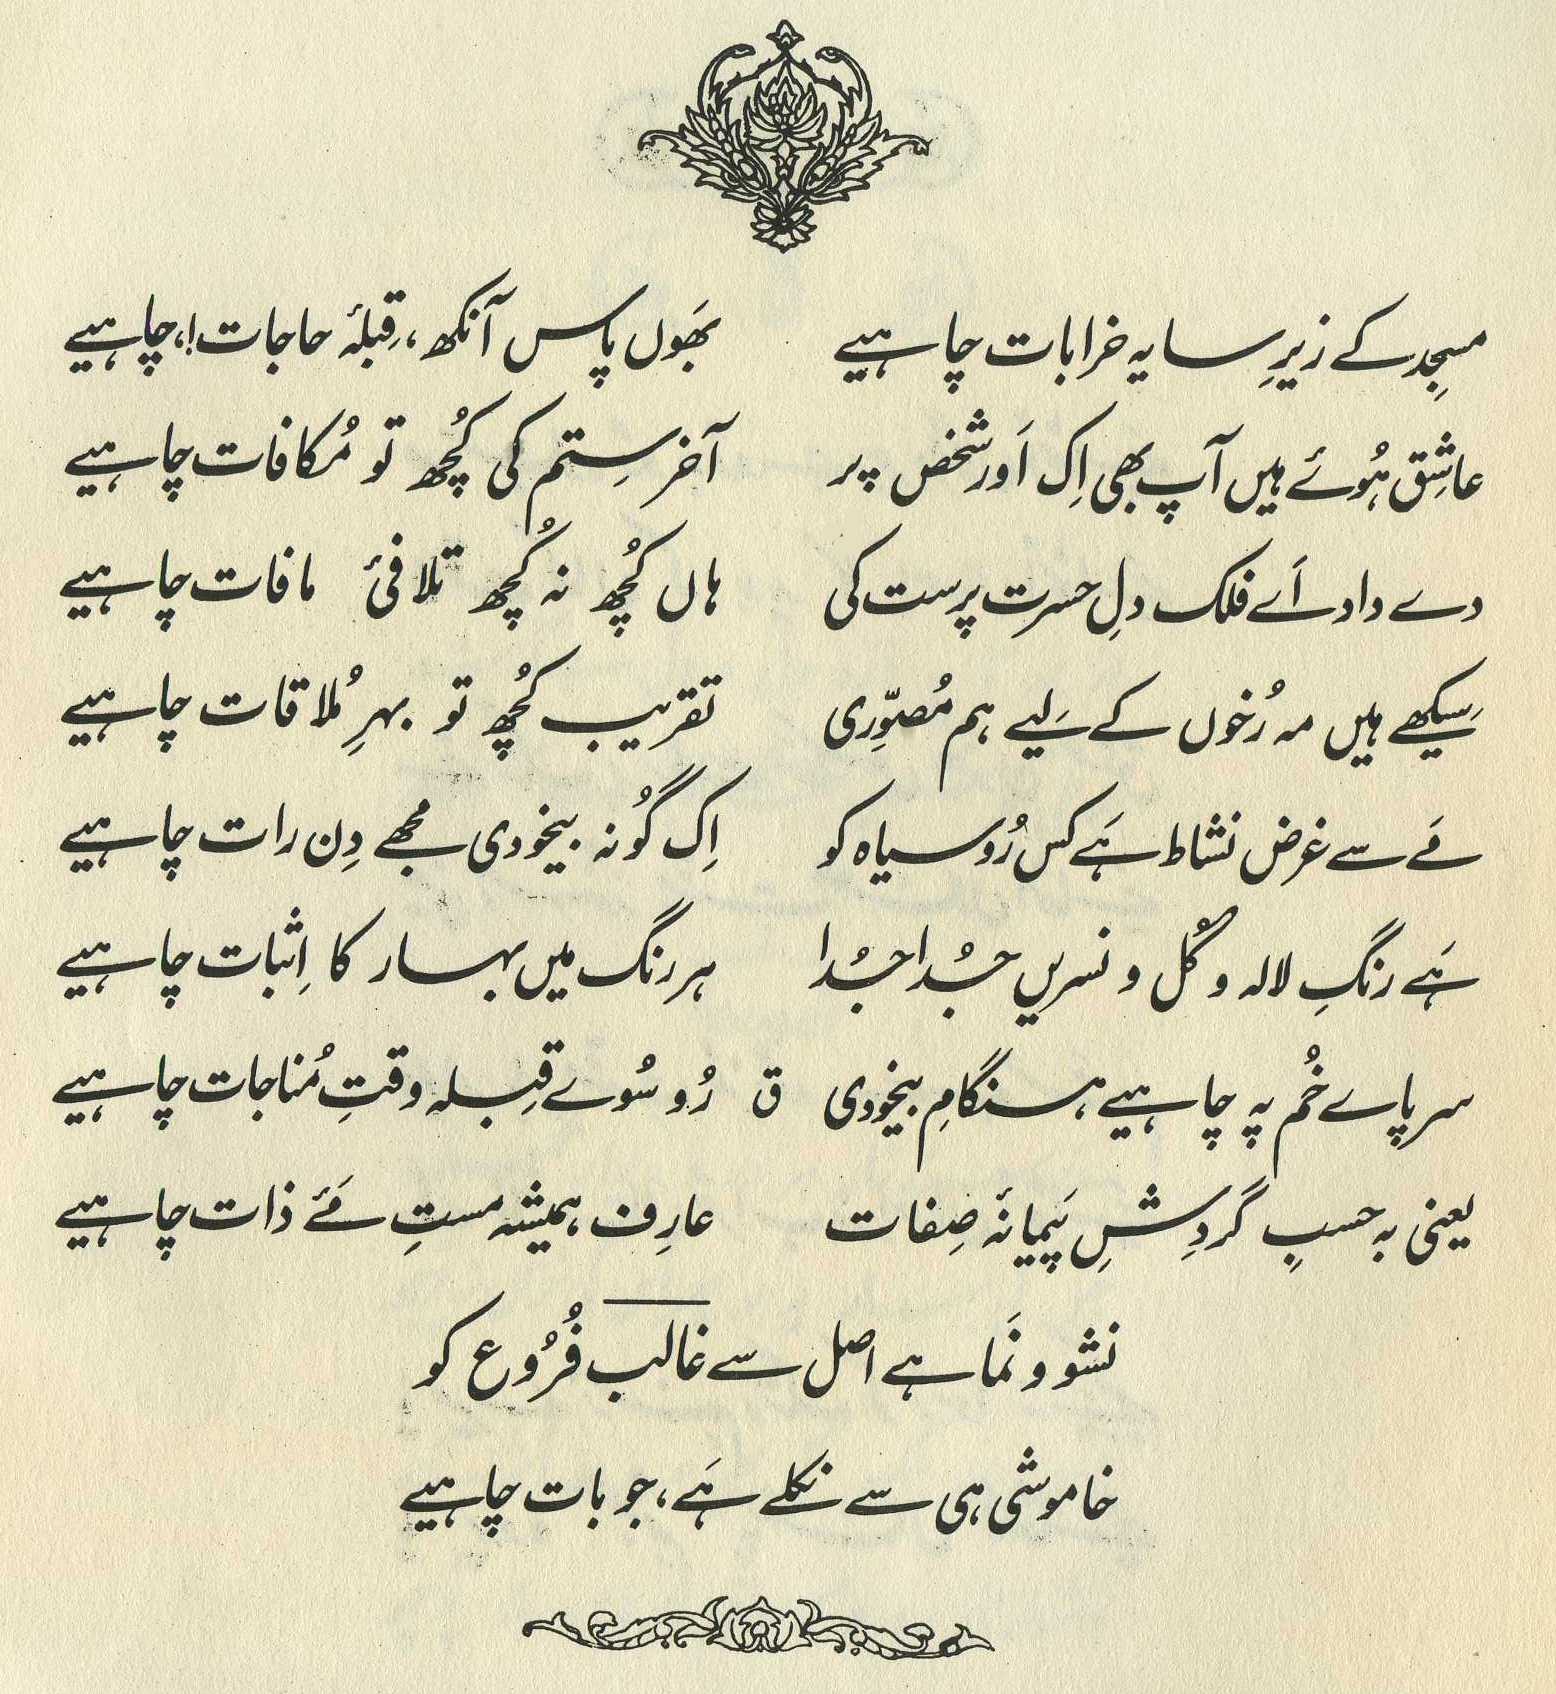 مسجِد کے زیرِ سایہ خرابات چاہیے بھَوں پاس آنکھ، قِبلۂ حاجات!، چاہیے
عاشِق ہُوئے ہیں آپ بھی اِک اَور شخص پر آخر سِتم کی کُچھ تو مُکافات چاہیے
دے داد اَے فلک دلِ حسرت پرست کی ہاں کُچھ نہ کُچھ تلافیٔ مافات چاہیے
سِیکھے ہیں مہ رُخوں کے لیے ہم مُصوِّری تقریب کُچھ تو بہرِ مُلاقات چاہیے
مَے سے غرض نشاط ہَے کس رُو سیاہ کو اِک گُونہ بیخودی مجھے دِن رات چاہیے
ہَے رنگِ لالہ و گُل و نسریں جُدا جُدا ہر رنگ میں بہار کا اِثبات چاہیے
سر پاے خُم پہ چاہیے ہنگامِ بیخودی ق رُو سُوے قِبلہ وقتِ مُناجات چاہیے
یعنی بہ حسبِ گردِشِ پَیمانۂ صِفات عارِف ہمیشہ مستِ مَۓ ذات چاہیے
نشو و نَما ہے اصل سے غالب فُرُوع کو
خاموشی ہی سے نکلے ہَے، جو بات چاہیے